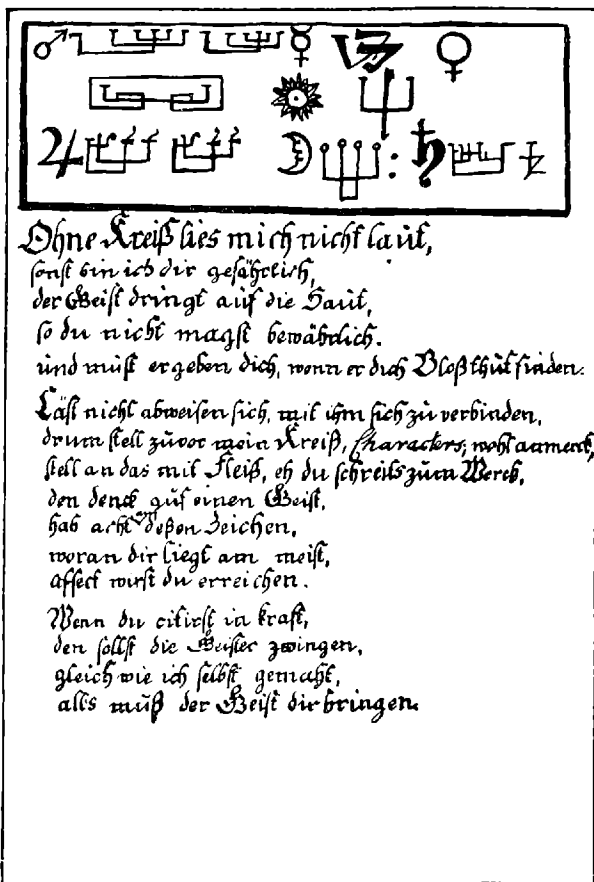 Ohne Kreiß lies mich nicht laut,
sonst bin ich dir gefährlich,
der Geist dringt auf die Haut,
so du nicht magst bewährlich.
und must ergeben dich, wenn er dich Bloß thut finden.
Läst nicht abweisen sich, mit ihm sich zu verbinden,
drum stell zuvor mein Kreiß, Characters, wohl anmerck,
stell an das mit Fleiß, eh du schreits zum Werck,
den denck auf einen Geist,
hab acht deßen Zeichen,
woran dir liegt am meist,
affect wirst du erreichen.
Wenn du citirst in kraft,
den sollst die Geister zwingen,
gleich wie ich selbst gemacht,
alls muß der Geist dir bringen.